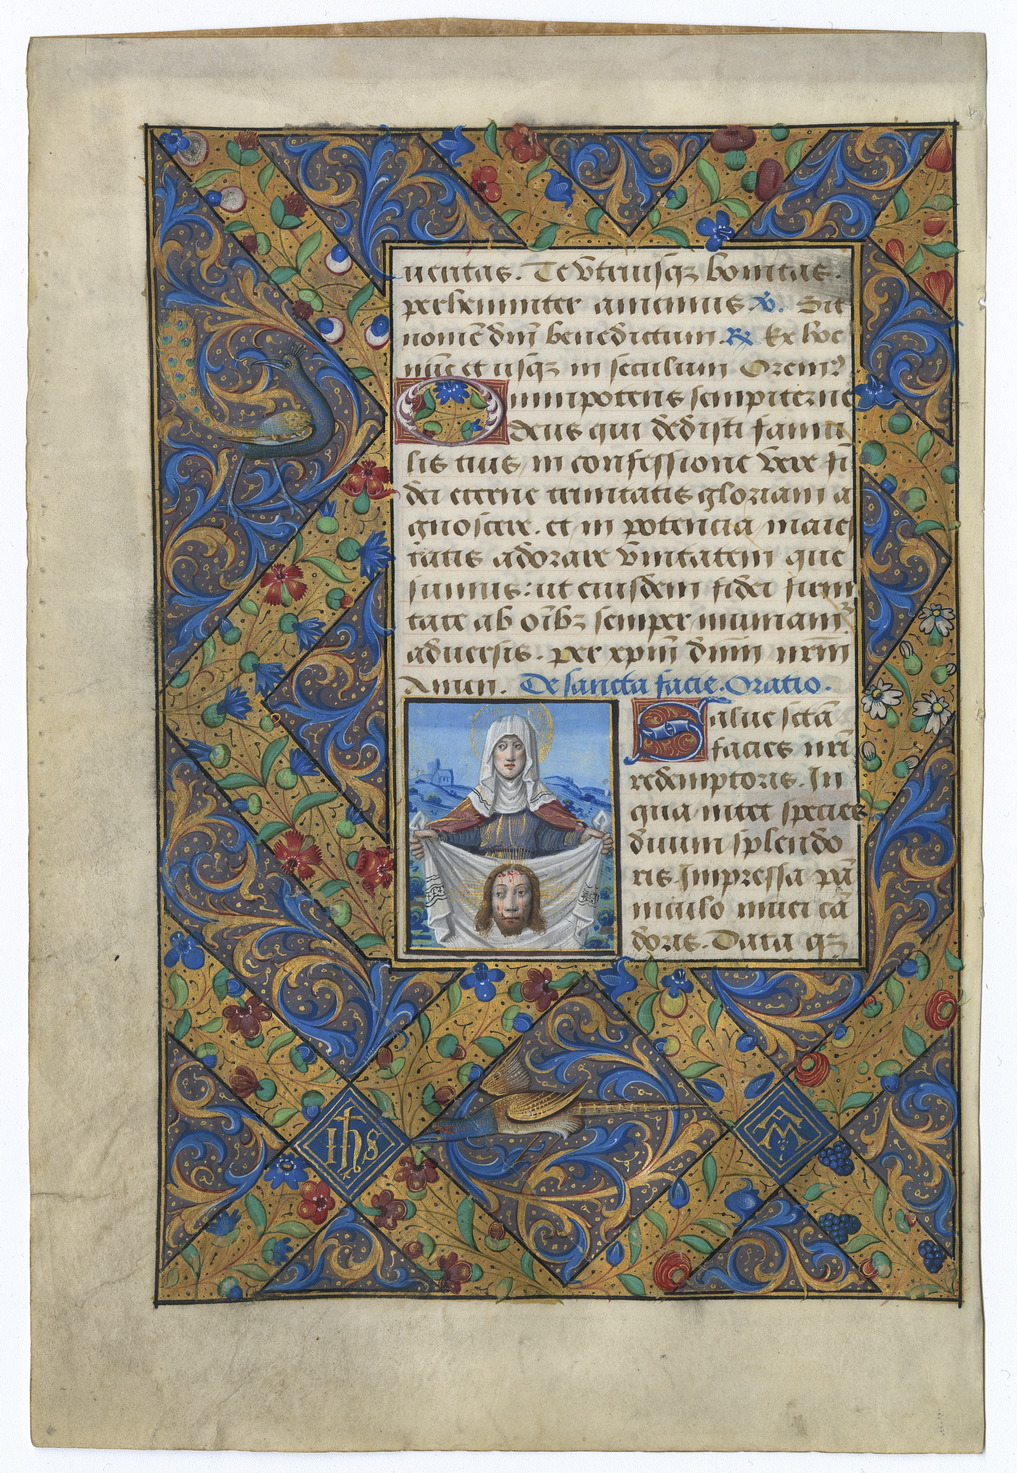 ueritas. Te vtriusqz bonitas.
perhenniter amemus v̉. Sit
nomē dn̄i benedictum. R̷ Ex hoc
nūc et usqz in seculum Orem⁹
Omnipotens sempiterne
deus qui dedisti famu
lis tuis in confessione vere fi
dei eterne trinitatis gloriam a
gnoscere. et in potencia maies
tatis adorare vnitatem que
sumus: ut eiusdem fidei firm
tate ab oīb3 semper muniam⁹
aduersis. per xp̄m dn̄m nrm̄
Amen. De sancta facie. Oratio.
Salue sctā
facies nrī
redemptoris. In
qua nitet species
diuini splendo
ris Impressa pā
niculo niuei cā
doris. Data qz
ihs
M